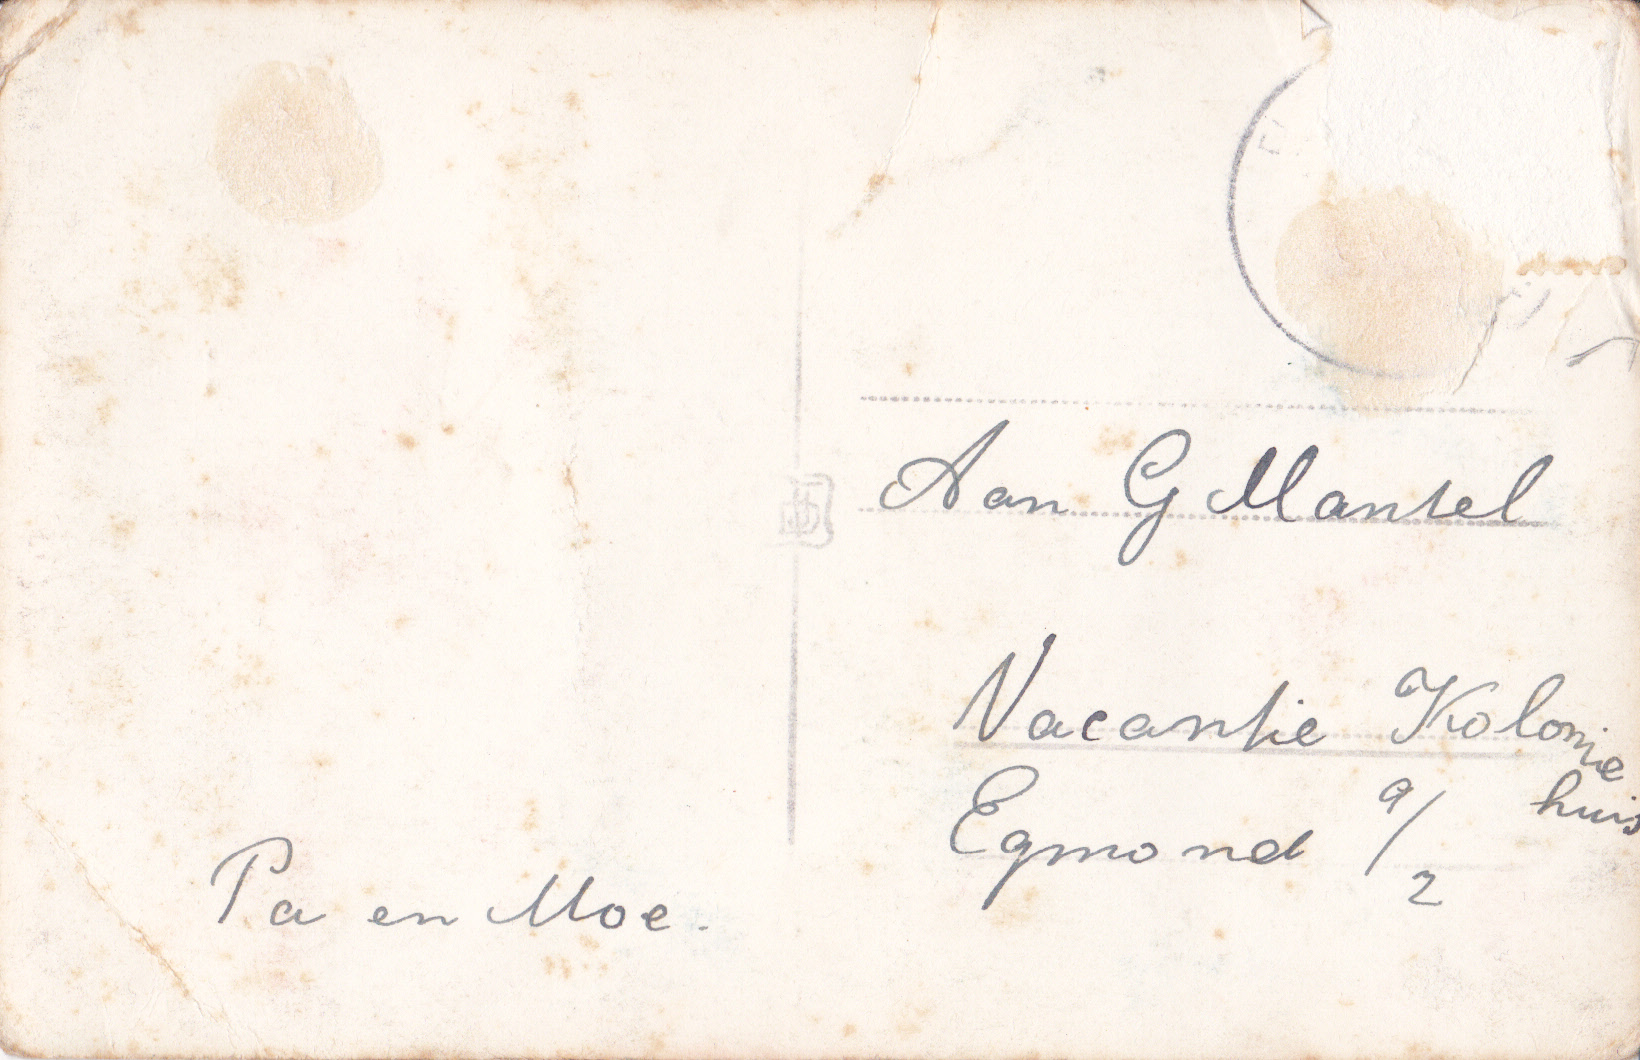 Aan G Mantel
Vacantie Kolonie
huis
Egmond a/z
Pa en Moe.